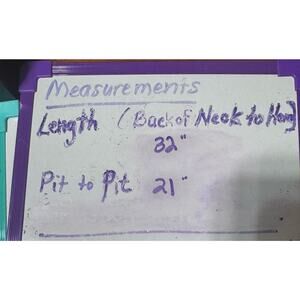 Measurements
Length (Back of Neck to Hem)
32"
Pit to Pit 21"